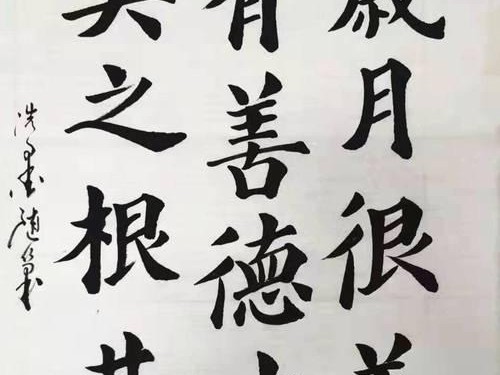 歲月很
有善德
之根
洗墨随筆